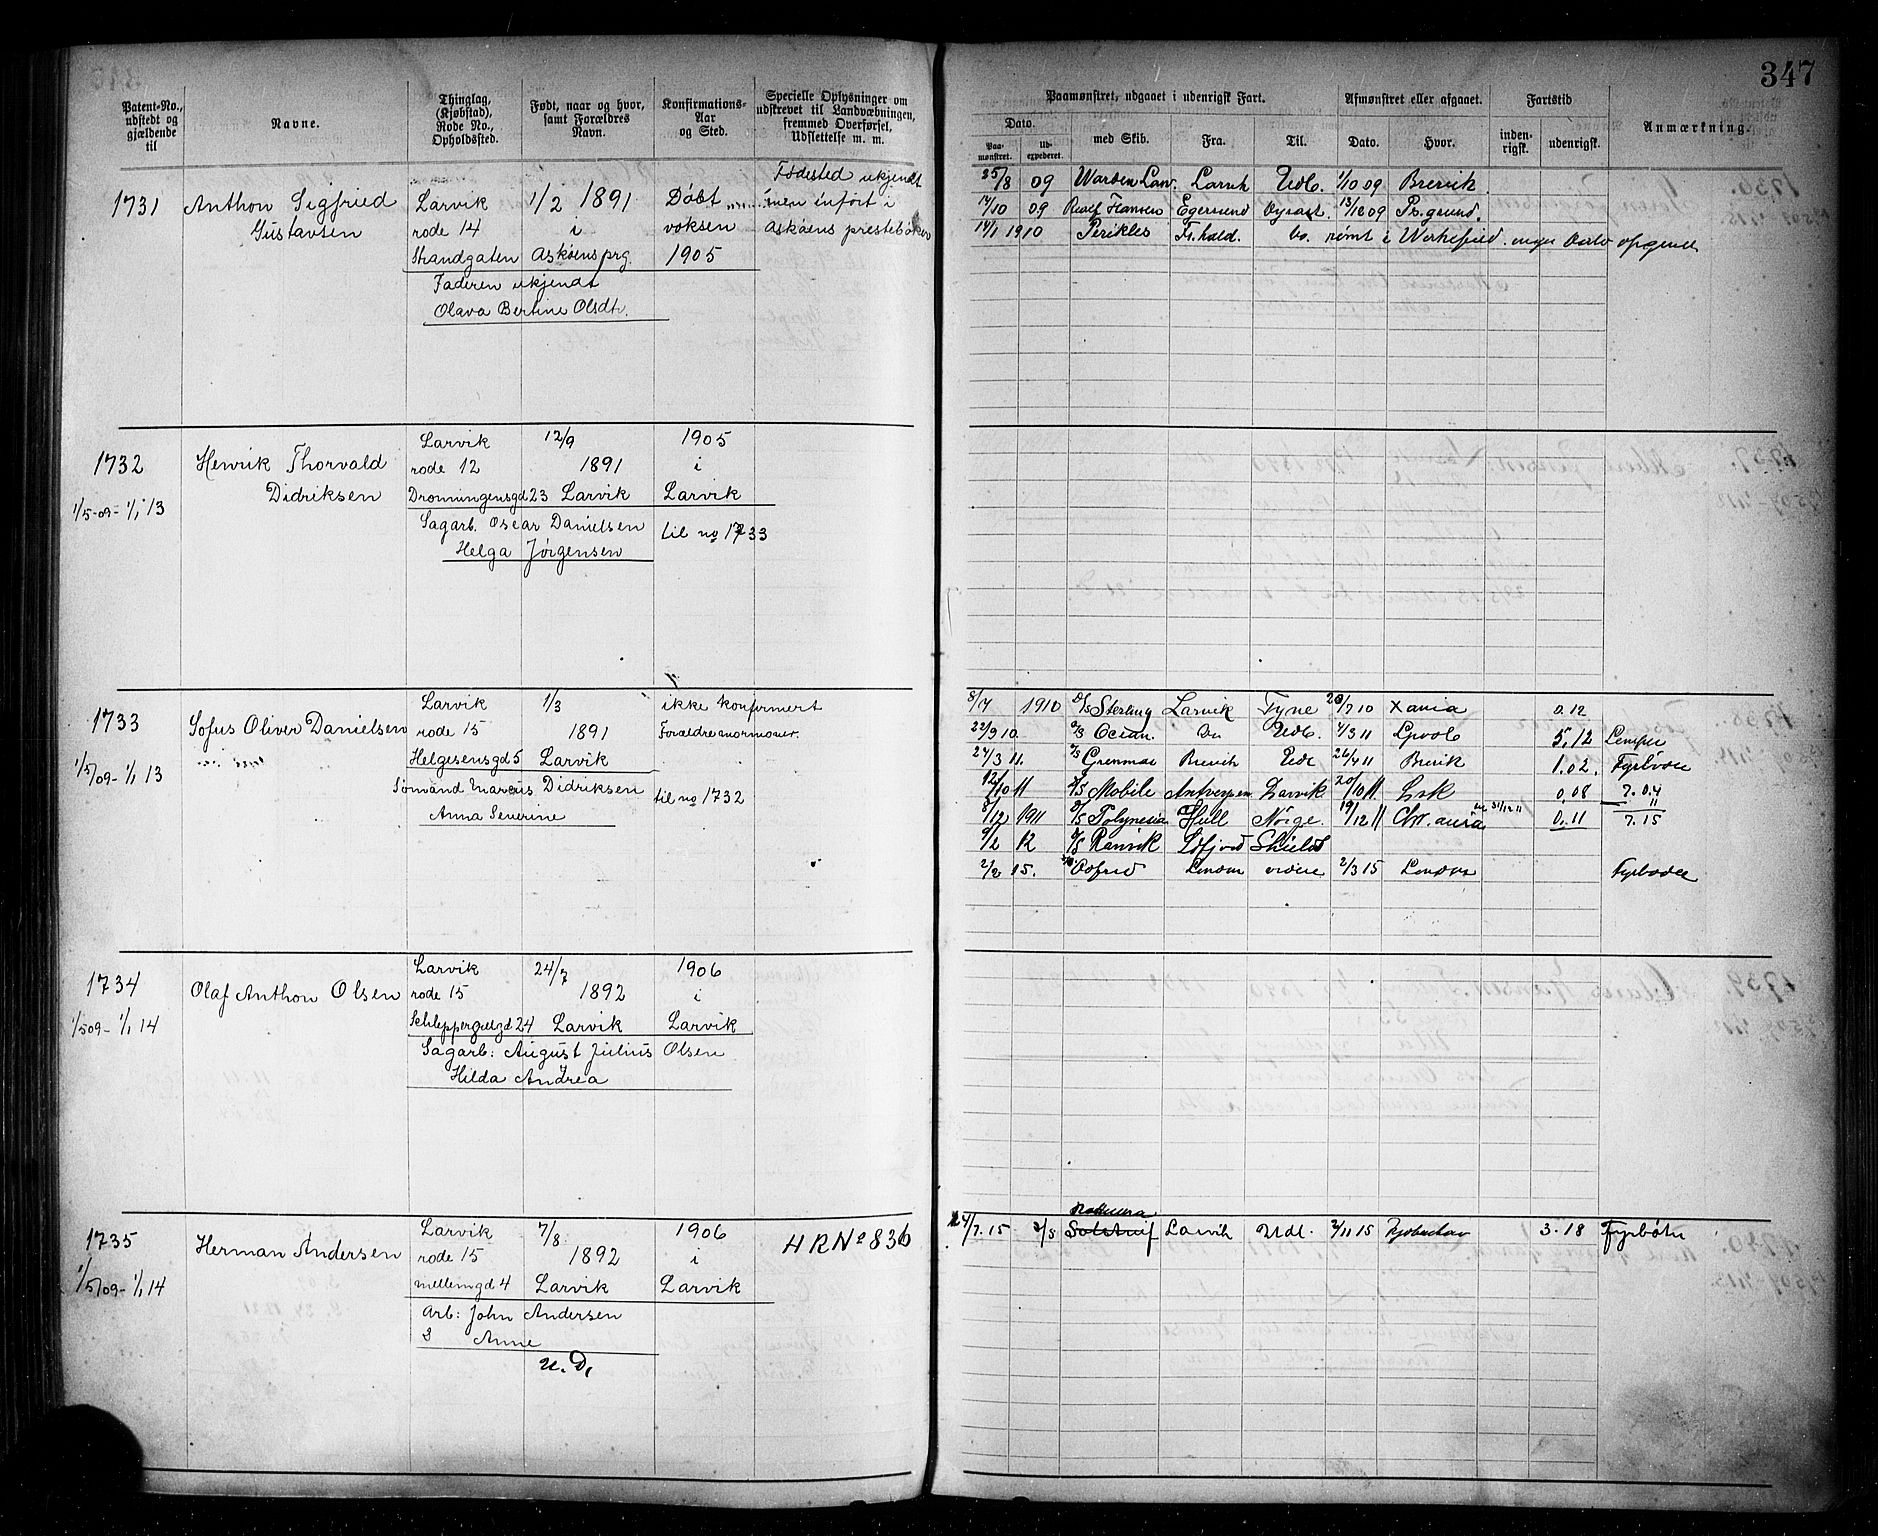 347
Patent-No., udstedt og gjældende til
Navne.
Thinglag, (Kjøbstad), Rode No., Opholdssted.
Født, naar og hvor, samt Forældres Navn.
Konfirmations-Aar og Sted.
Specielle Oplysninger om udskrevet til Landvæbningen, fremmed Overførsel, Udslettelse m. m.
Paamønstret, udgaaet i udenrigsk Fart.
Dato.
Paa-mønstret.
Ud-expederet.
med Skib.
Fra.
Til.
Afmønstret eller afgaaet.
Dato.
Hvor.
Fartstid
inden-rigsk.
udenrigsk.
Anmærkning.
1731
Anthon Sigfried
Gustavsen
Larvik
rode 14
Strandgaten
1/2 1891
i
Askøens prg.
Døbt
voksen
1905
Fødested ukjendt
men inført i
Askøens prestebøker
Faderen ukjendt
Olava Bertine Olsdtr.
25/8 09 Larvik Udl. 1/10 09 Brevik
14/10 09 Rolf Hansen Egersund 13/12 09 Ps.grund.
14/1 1910 Perikles Fr.hald. rømt i
1732
1/5-09-1/1 13
Henrik Thorvald
Didriksen
Larvik
rode 12
Dronningensgd 23
12/9
1891
Larvik
1905
i
Larvik
Sagarb. Oscar Danielsen
Helga Jørgensen
til no 1733
1733
1/5/09-1/1 13
Sofus Oliver Danielsen
Larvik
rode 15
Helgesensgd 5
1/3
1891
Larvik
ikke konfirmert
Forældre mormoner.
Sømand Marcus Didriksen
Anna Severine
til no 1732
8/7 1910 D/S Sterling Larvik Tyne 20/7 10 Xania 0.12
22/9 10 Ocean Do Udl. 4/3 11 Lpool 5.12 Lemper
24/3 11. D/S Grenmar Brevik Udl 26/4 11 Brevik 1.02. Fyrbøter
12/10 11 D/S Mobile Antverpen Larvik 20/10 11. Lvk 0.08 7.04
8/12 1911 D/S Polynesia Hull Norge. 19/12 11 Chr.ania 31/12 11 0.11 11
7.15
9/2 12 D/S Ranvik Idfjord Shields
2/2 15. London videre 2/3 15 London Fyrbøder
1734
1/5 09-1/1 14
Olaf Anthon Olsen
Larvik
rode 15
Schleppergrelgd 24
24/7
1892
Larvik
1906
i
Larvik
Sagarb: August Julius Olsen
Hilda Andrea
1735
1/5/09-1/1 14
Herman Andersen
Larvik
rode 15
mellemgd 4
7/8
1892
Larvik
1906
i
Larvik
HR No 836
Arb: John Andersen
& Anne
U.D.
24/7.15 D/S Solstreif Larvik Udl. 2/11 15 Kjøbenhav 3.18 Fyrbøter